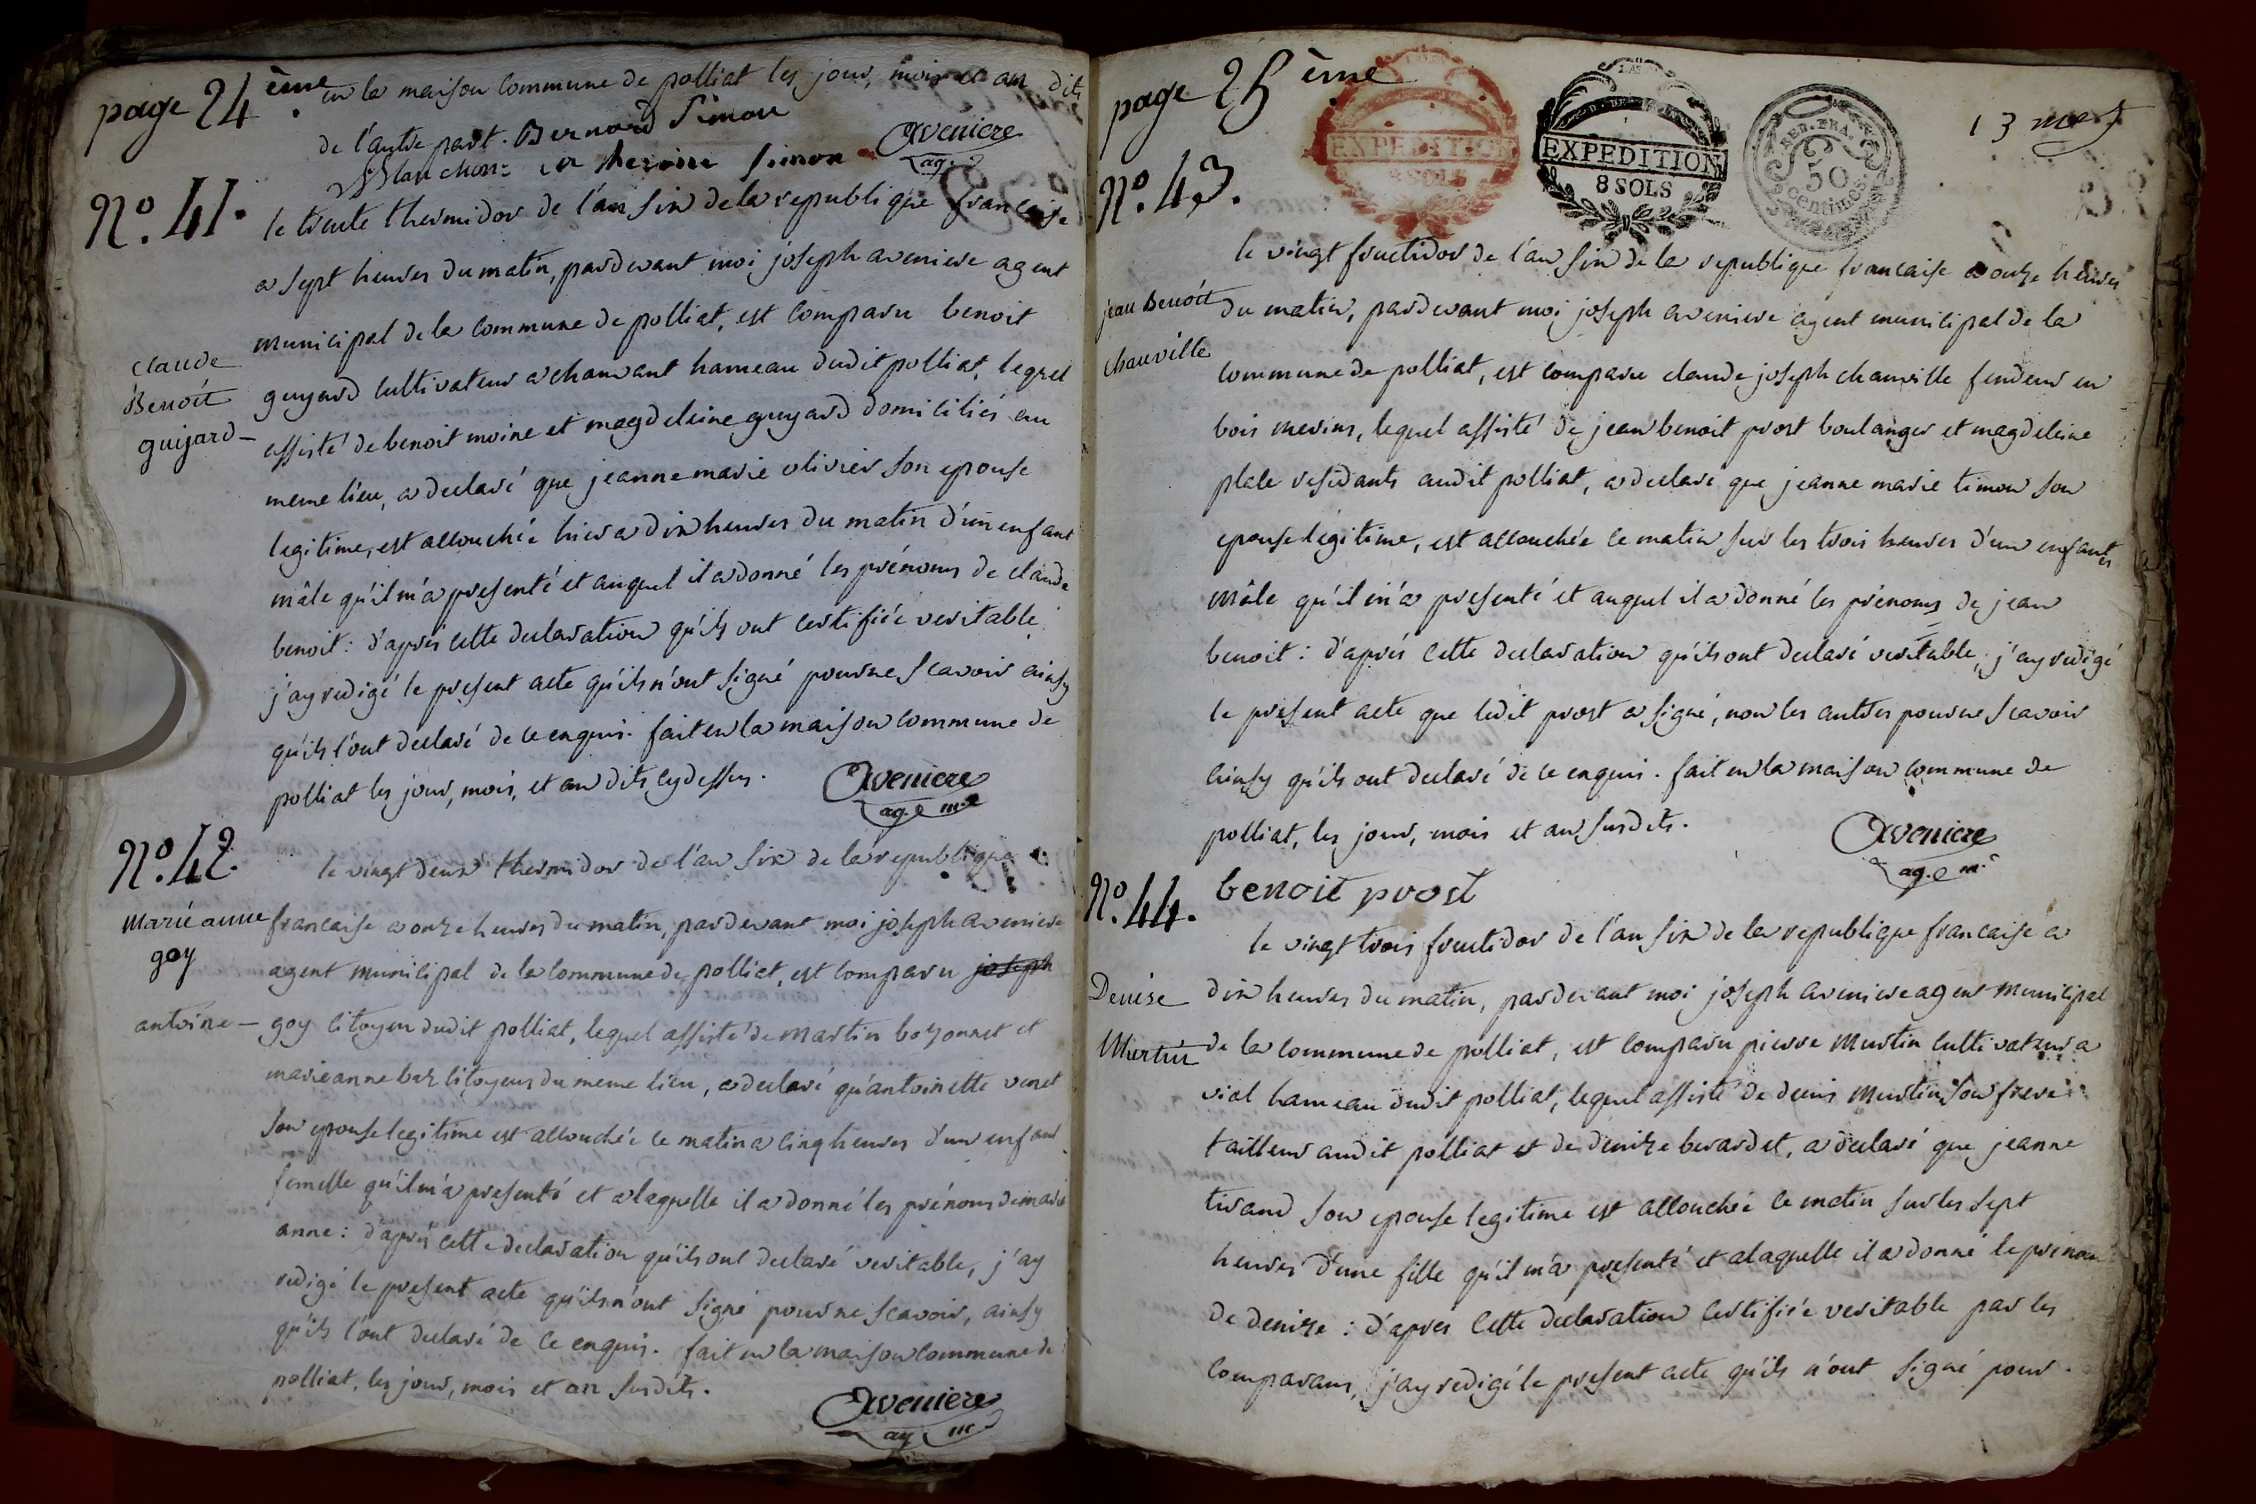 page 24 ème
en la maison commune de polliat les jour, mois et an dits
de l'autre part. Bernard Simon
Blanchon catherine simon Aveniere
ag.
N.º 41.
le trente thermidor de l'an six de la republique francaise
a sept heures du matin, pardevant moi joseph aveniere agent
municipal de la commune de polliat, est comparu benoit
Claude
Benoit
guijard
guyard cultivateur a chanvant hameau dudit polliat, lequel
assisté de benoit moine et magdeleine guyard domiciliés au
meme lieu, a declaré que jeanne marie olivier son epouse
legitime, est accouchée hier a dix heures du matin d'un enfant
mâle qu'il m'a presenté et auquel il a donné les prénoms de claude
benoit : d'après cette declaration qu'ils ont certifiée veritable,
j'ay redigé le present acte qu'ils n'ont signé pour ne scavoir ainsy
qu'ils l'ont declaré de ce enquis. fait en la maison commune de
polliat les jour, mois, et an dits cy dessus.
Aveniere
ag. m.
N.º 42.
le vingt deux thermidor de l'an six de la republique
Marie anne
goy
francaise a onze heures du matin, pardevant moi joseph aveniere
agent municipal de la commune de polliat, est comparu joseph
antoine — goy citoyen dudit polliat, lequel assisté de martin bozonnet et
marie anne buz citoyens du meme lieu, a declaré qu'antoinette venet
son epouse legitime est accouchée ce matin a cinq heures d'un enfant
femelle qu'il m'a presenté et a laquelle il a donné les prénoms de marie
anne : d'après cette declaration qu'ils ont declaré veritable, j'ay
redigé le present acte qu'ils n'ont signé pour ne scavoir, ainsy
qu'ils l'ont declaré de ce enquis. fait en la maison commune de
polliat, les jour, mois et an susdits.
Aveniere
ag m
page 25 ème
EXPEDITION
8 SOLS
EXPEDITION
8 SOLS
REP. FRA.
50
Centimes
13
N.º 43.
le vingt fructidor de l'an six de la republique francaise a onze heures
jean Benoit
Chauville
du matin, pardevant moi joseph aveniere agent municipal de la
commune de polliat, est comparu claude joseph chauville fendeur en
bois merins, lequel assisté de jean benoit prost boulanger et magdeleine
plale residants audit polliat, a declaré que jeanne marie timon son
epouse légitime, est accouchée ce matin sur les trois heures d'un enfant
mâle qu'il m'a presenté et auquel il a donné les prénoms de jean
benoit : d'après cette declaration qu'ils ont declaré veritable, j'ay redigé
le present acte que ledit prost a signé, non les autres pour ne scavoir
ainsy qu'ils ont declaré de ce enquis. fait en la maison commune de
polliat, les jour, mois et an susdits.
Aveniere
ag. m.
benoit prost
N.º 44.
le vingt trois fructidor de l'an six de la republique francaise a
Denise
dix heures du matin, pardevant moi joseph aveniere agent municipal
de la commune de polliat, est comparu pierre Murtin cultivateur a
vial hameau dudit polliat, lequel assisté de denis Murtin son frere
tailleur audit polliat et de denize berardet, a declaré que jeanne
tirand son epouse legitime est accouchée ce matin sur les sept
heures d'une fille qu'il m'a presenté et a laquelle il a donné le prénom
de denize : d'après cette declaration certifiée veritable par les
comparans, j'ay redigé le present acte qu'ils n'ont signé pour